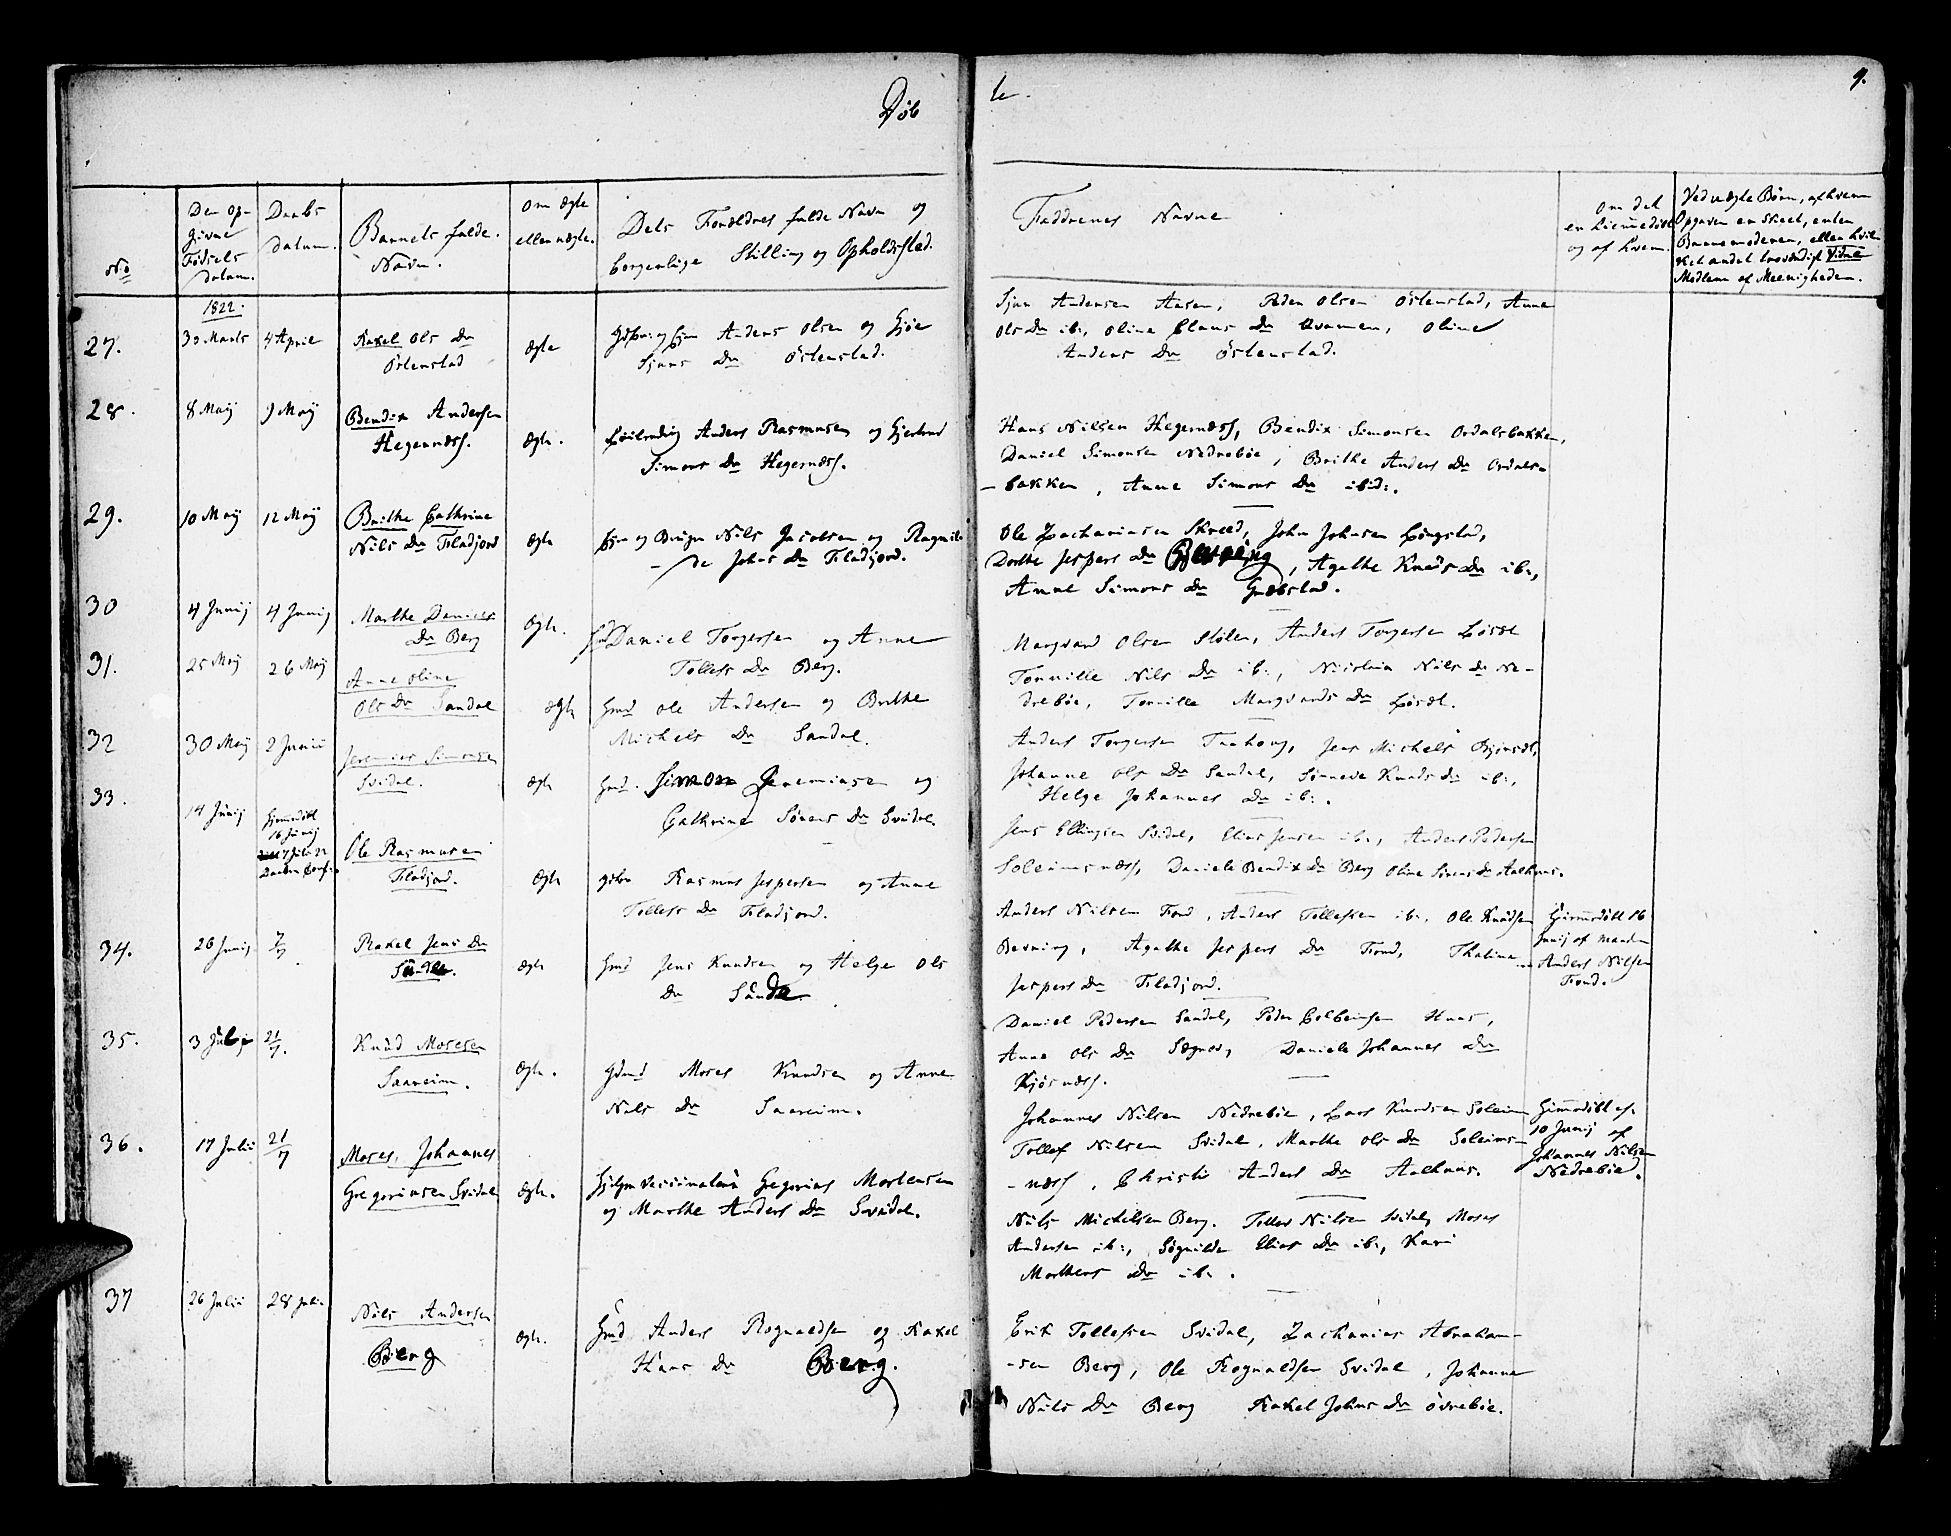 Døb
te.
9.
No
Den op-
givne
Fødsels
Datum.
Daabs
Datum.
Barnets fulde
Navn.
Om ægte
eller uægte.
Dets Forældres fulde Navn og
borgerlige Stilling og Opholdssted.
Faddrenes Navne
Om det
er hiemmedøbt
og af hvem.
Ved uægte Børn, af hvem
Opgaven er skeet, enten
Barnemoderen, eller hvil-
ket andet troværdigt Vidne
Medlem af Meenigheden.
1822.
27.
30 Marts
4 April
Rakel Ols Dr
Östenstad
Ægte
Anders Olsen og Gjøe
Sjurs Dr Östenstad.
Sjur Andersen Aasen, Peder Olsen Östenstad, Anne
Ols Dr ib:, Oline Claus Dr Qvamen, Oline
Anders Dr Östenstad.
28.
8 Maij
9 Maij
Bendix Andersen
Hegernæss.
Ægte.
Anders Rasmusen og Gjertrud
Simons Dr Hegernæss.
Hans Nilsen Hegernæss, Bendix Simonsen Ordalsbakken,
Daniel Simonsen Nedrebøe, Brithe Anders Dr Ordals-
-bakken, Anne Simons Dr ibid:.
29.
10 Maij
12 Maij
Brithe Cathrine
Nils Dr Fladjord
Ægte
Nils Jacobsen og Ragnil-
-de Johns Dr Fladjord.
Ole Zachariasen Skreed, John Johnsen Longstad,
Dorthe Jespers Dr Berning, Agathe Knuds Dr ib:,
Anne Simons Dr Grøbstad.
30
4 Junij
4 Junij
Marthe Daniels
Dr Berg
Ægte.
Daniel Torgersen og Anne
Tollefs Dr Berg.
Margvard Olsen Stølen, Anders Torgersen Løset
Torville Nils Dr ib:, Nicolina Nils Dr Ne-
drebøe, Torville Margvards Dr Løset.
31.
25 Maij
26 Maij
Anne Oline
Ols Dr Sandal
Ægte
Gmd Ole Andersen og Brithe
Michels Dr Sandal.
Anders Torgersen Taahoug, Jens Michels
Johanne Ols Dr Sandal, Sønneve Knuds Dr ib:,
Helge Johannes Dr ib:.
32
30 Maij
2 Junii
Jeremias Simonsen
Svidal.
Ægte
Gmd. Simon Jeremiasen og
Cathrine Sørens Dr Svidal.
Jens Ellingsen Svidal, Elias Jensen ib:, Anders Pedersen
Soleimsnæss, Daniele Bendix Dr Berg Oline Sørens Dr Aalhuus.
33.
14 Junij
Hjemmedøbt
16 Junij
7 Julii
Daaben Conf.
Ole Rasmusen
Fladjord.
Ægte
Rasmus Jespersen og Anne
Tollefs Dr Fladjord.
Anders Nilsen Fond, Anders Tollefsen ib:, Ole Knudsen
Berning, Agathe Jespers Dr Fond, Thaline
Jespers Dr Fladjord.
Hjemmedøbt 16
Junij af Manden
Anders Nilsen
Fond.
34.
26 Junij
7/7
Rakel Jens Dr
Sunde.
Ægte
Gmd Jens Knudsen og Helge Ols
Dr Sunde.
Daniel Pedersen Sandal, Peder Colbeinsen Huus,
Anne Ols Dr Sægnes, Daniele Johannes Dr
Kjøsnæss.
35.
3 Julij
21/7.
Knud Mosesen
Saareim.
Ægte.
Gdmd Moses Knudsen og Anne
Nils Dr Saareim.
Johannes Nilsen Nedrebøe, Lars Knudsen Soleim
Tollef Nilsen Svidal, Marthe Ols Dr Soleims-
-næss, Christi Anders Dr Aalhuus.
Hjemmedøbt
10 Junij af
Johannes Nilsen
Nedrebøe.
36.
17 Julii
21/7
Moses Johannes
Gregoriusen Svidal
Ægte.
Gregorius Mortensen
og Marthe Anders Dr Svidal.
Nils Michelsen Berg. Tollef Nilsen Svidal, Moses
Andersen ib:, Søgnilde Elias Dr ib:, Kari
Mortens Dr ib:.
37
26 Julii
28 Julii
Nils Andersen
Berg
Ægte.
Gmd Anders Rognaldsen og Rakel
Hans Dr Berg.
Erik Tollefsen Svidal, Zacharias Abraham-
-sen Berg, Ole Rognaldsen Svidal, Johanne
Nils Dr Berg Rakel Johns Dr Øvrebøe.